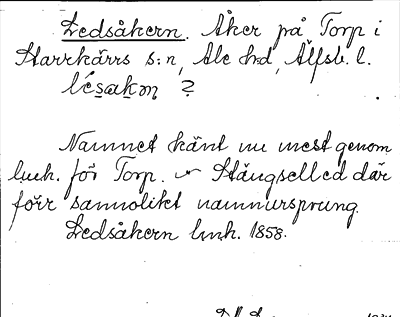 Ledsåkern. Åker på Torp i
Starrkärrs s:n, Ale hd, Älfsb. l.
lésakɷn ?
Namnet känt nu mest genom
lmh. för Torp. Stängselled där
förr sannolikt namnursprung.
Ledsåkern lmh. 1858.